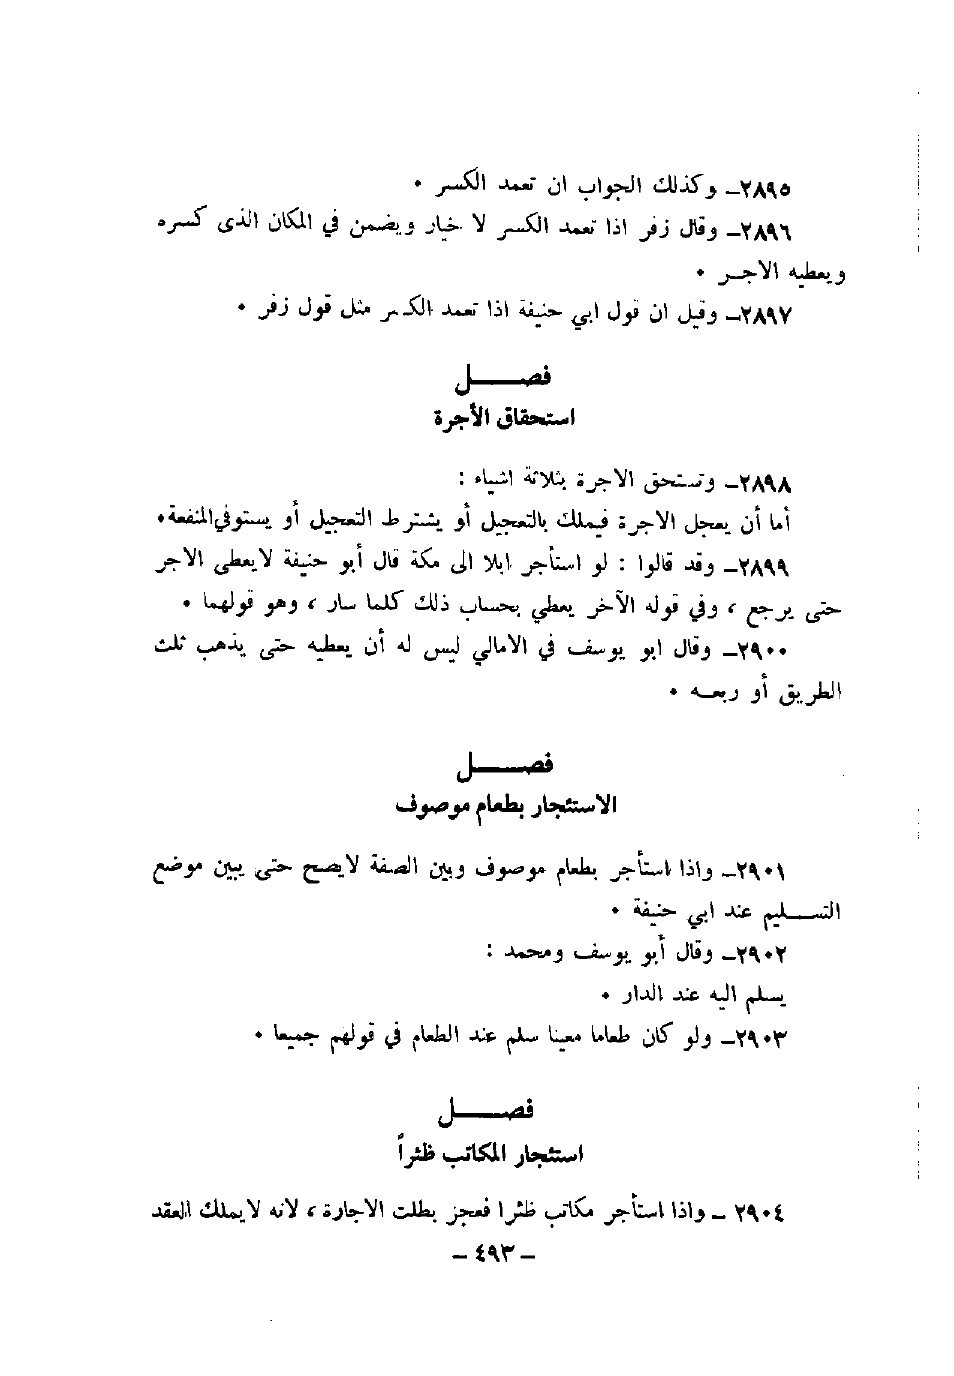 ٢٨٩٥ـ وكذلك الجواب ان تعمد الكسر ٠
٢٨٩٦ـ وقال زفر اذا تعمد الكسر لا خيار ويضمن في المكان الذى كسره
ويعطيه الاجـر ٠
٢٨٩٧ـ وقيل ان قول ابي حنيفة اذا تعمد الكسر مثل قول زفر ٠
فصـــــل
استحقاق الأجرة
٢٨٩٨ـ وتستحق الاجرة بثلاثة اشياء :
أما أن يعجل الاجرة فيملك بالتعجيل أو يشترط التعجيل أو يستوفي المنفعة٠
٢٨٩٩ـ وقد قالوا : لو استأجر ابلا الى مكة قال أبو حنيفة لايعطى الاجر
حتى يرجع ، وفي قوله الآخر يعطي بحساب ذلك كلما سار ، وهو قولهما ٠
٢٩٠٠ـ وقال ابو يوسف في الامالي ليس له أن يعطيه حتى يذهب ثلث
الطريق أو ربعـه ٠
فصـــــل
الاستئجار بطعام موصوف
٢٩٠١ـ واذا استأجر بطعام موصوف وبين الصفة لايصح حتى يبين موضع
التســليم عند ابي حنيفة ٠
٢٩٠٢ـ وقال أبو يوسف ومحمد :
يسلم اليه عند الدار ٠
٢٩٠٣ـ ولو كان طعاما معينا سلم عند الطعام في قولهم جميعا ٠
فصـــــل
استئجار المكاتب ظئراً
٢٩٠٤ ـ واذا استأجر مكاتب ظئرا فعجز بطلت الاجارة ، لانه لايملك العقد
ـ ٤٩٣ ـ